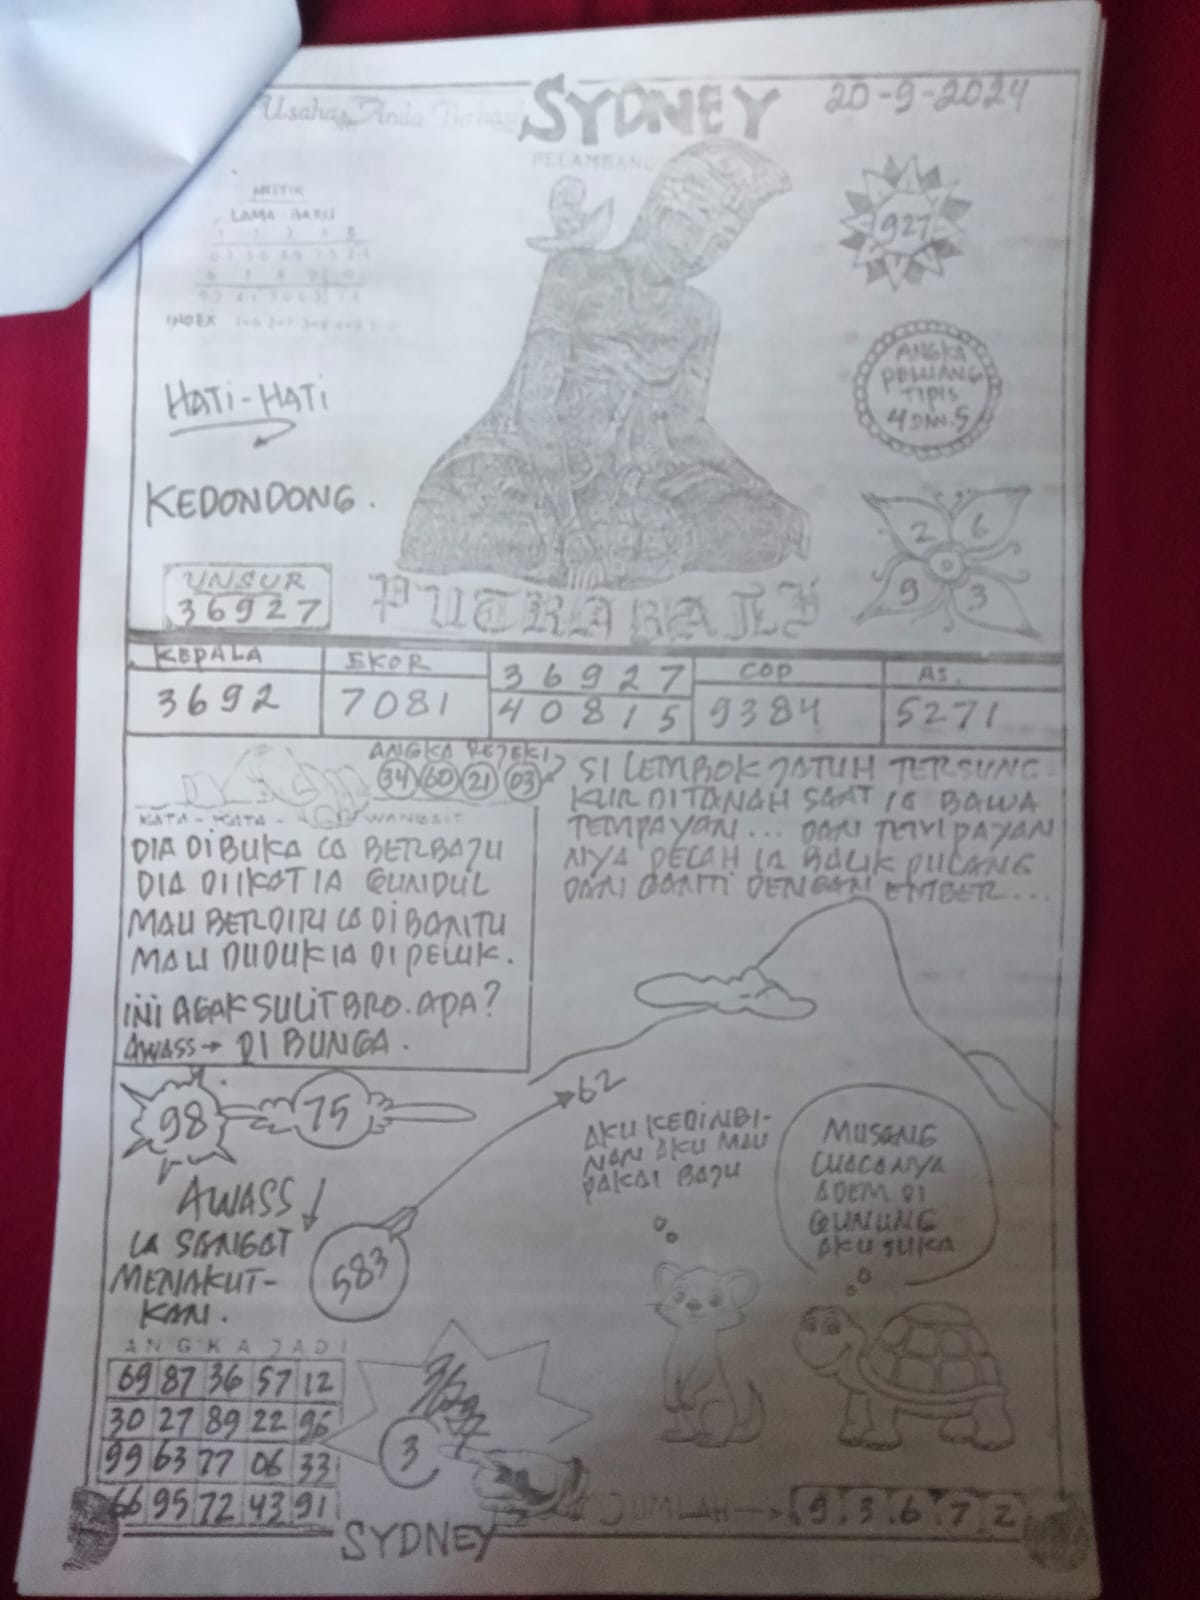 Usaha Anda Berhasil
SYDNEY
20-9-2024
PELAMBANG
MISTIK
LAMA BARU
INDEX
927
HATI-HATI
ANGKA
PELUANG
TIPIS
4 DAN 5
KEDONDONG.
2 6
9 3
UNSUR
36927
PUTRA BALI
KEPALA EKOR 36927 COP AS.
3692 7081 40815 9384 5271
ANGKA REJEKI
34 60 21 03
SI LEMBOK JATUH TERSUNG-
KUR DITANAH SAAT IA BAWA
TEMPAYAN... DAN TEMPAYAN
NYA PECAH IA BALIK PULANG
DAN GANTI DENGAN EMBER...
KATA-KATA-WANGSIT
DIA DIBUKA IA BERBAJU
DIA DIIKAT IA GUNDUL
MAU BERDIRI IA DIBANTU
MAU DUDUK IA DIPELUK.
INI AGAK SULIT BRO. APA?
AWASS→ DI BUNGA.
98 75
62
AKU KEDINGI-
NAN AKU MAU
PAKAI BAJU
MUSANG
CUACANYA
ADEM DI
GUNUNG
AKU SUKA
AWASS
IA SANGAT
MENAKUT-
KAN.
583
ANGKA JADI
69 87 36 57 12
30 27 89 22 96
99 63 77 06 33
66 95 72 43 91
3
JUMLAH→ 9 3 6 7 2
SYDNEY